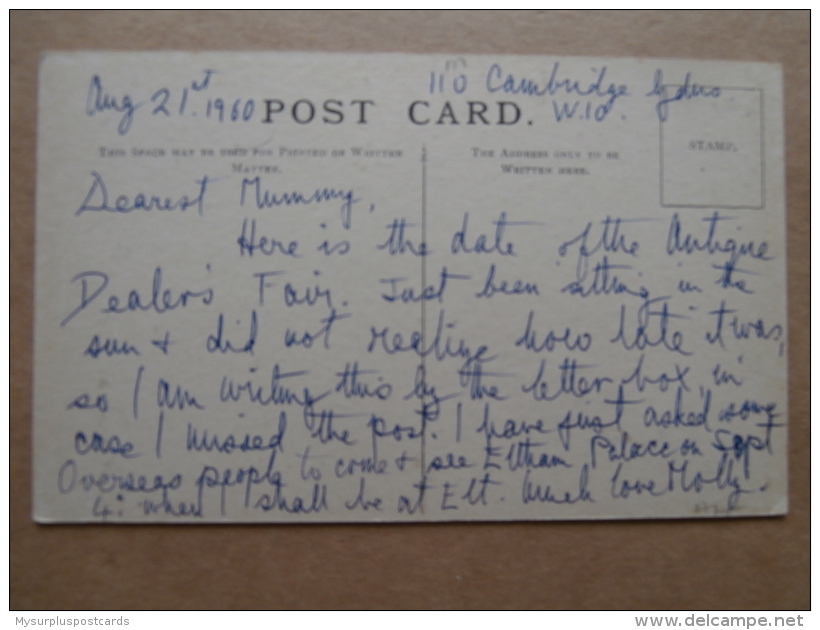 Aug 21st. 1960
110 Cambridge Gdns
W.10.
POST CARD.
THIS SPACE MAY BE USED FOR PRINTED OR WRITTEN
MATTER.
THE ADDRESS ONLY TO BE
WRITTEN HERE.
STAMP.
Dearest Mummy,
Here is the date of the Antique
Dealer's Fair. Just been sitting in the
sun & did not realize how late it was,
so I am writing this by the letter box, in
case I missed the post. I have just asked some
Overseas people to come & see Eltham Palace on Sept
4: when I shall be at Elt. Much love Molly.
Mysurpluspostcards
www.delcampe.net